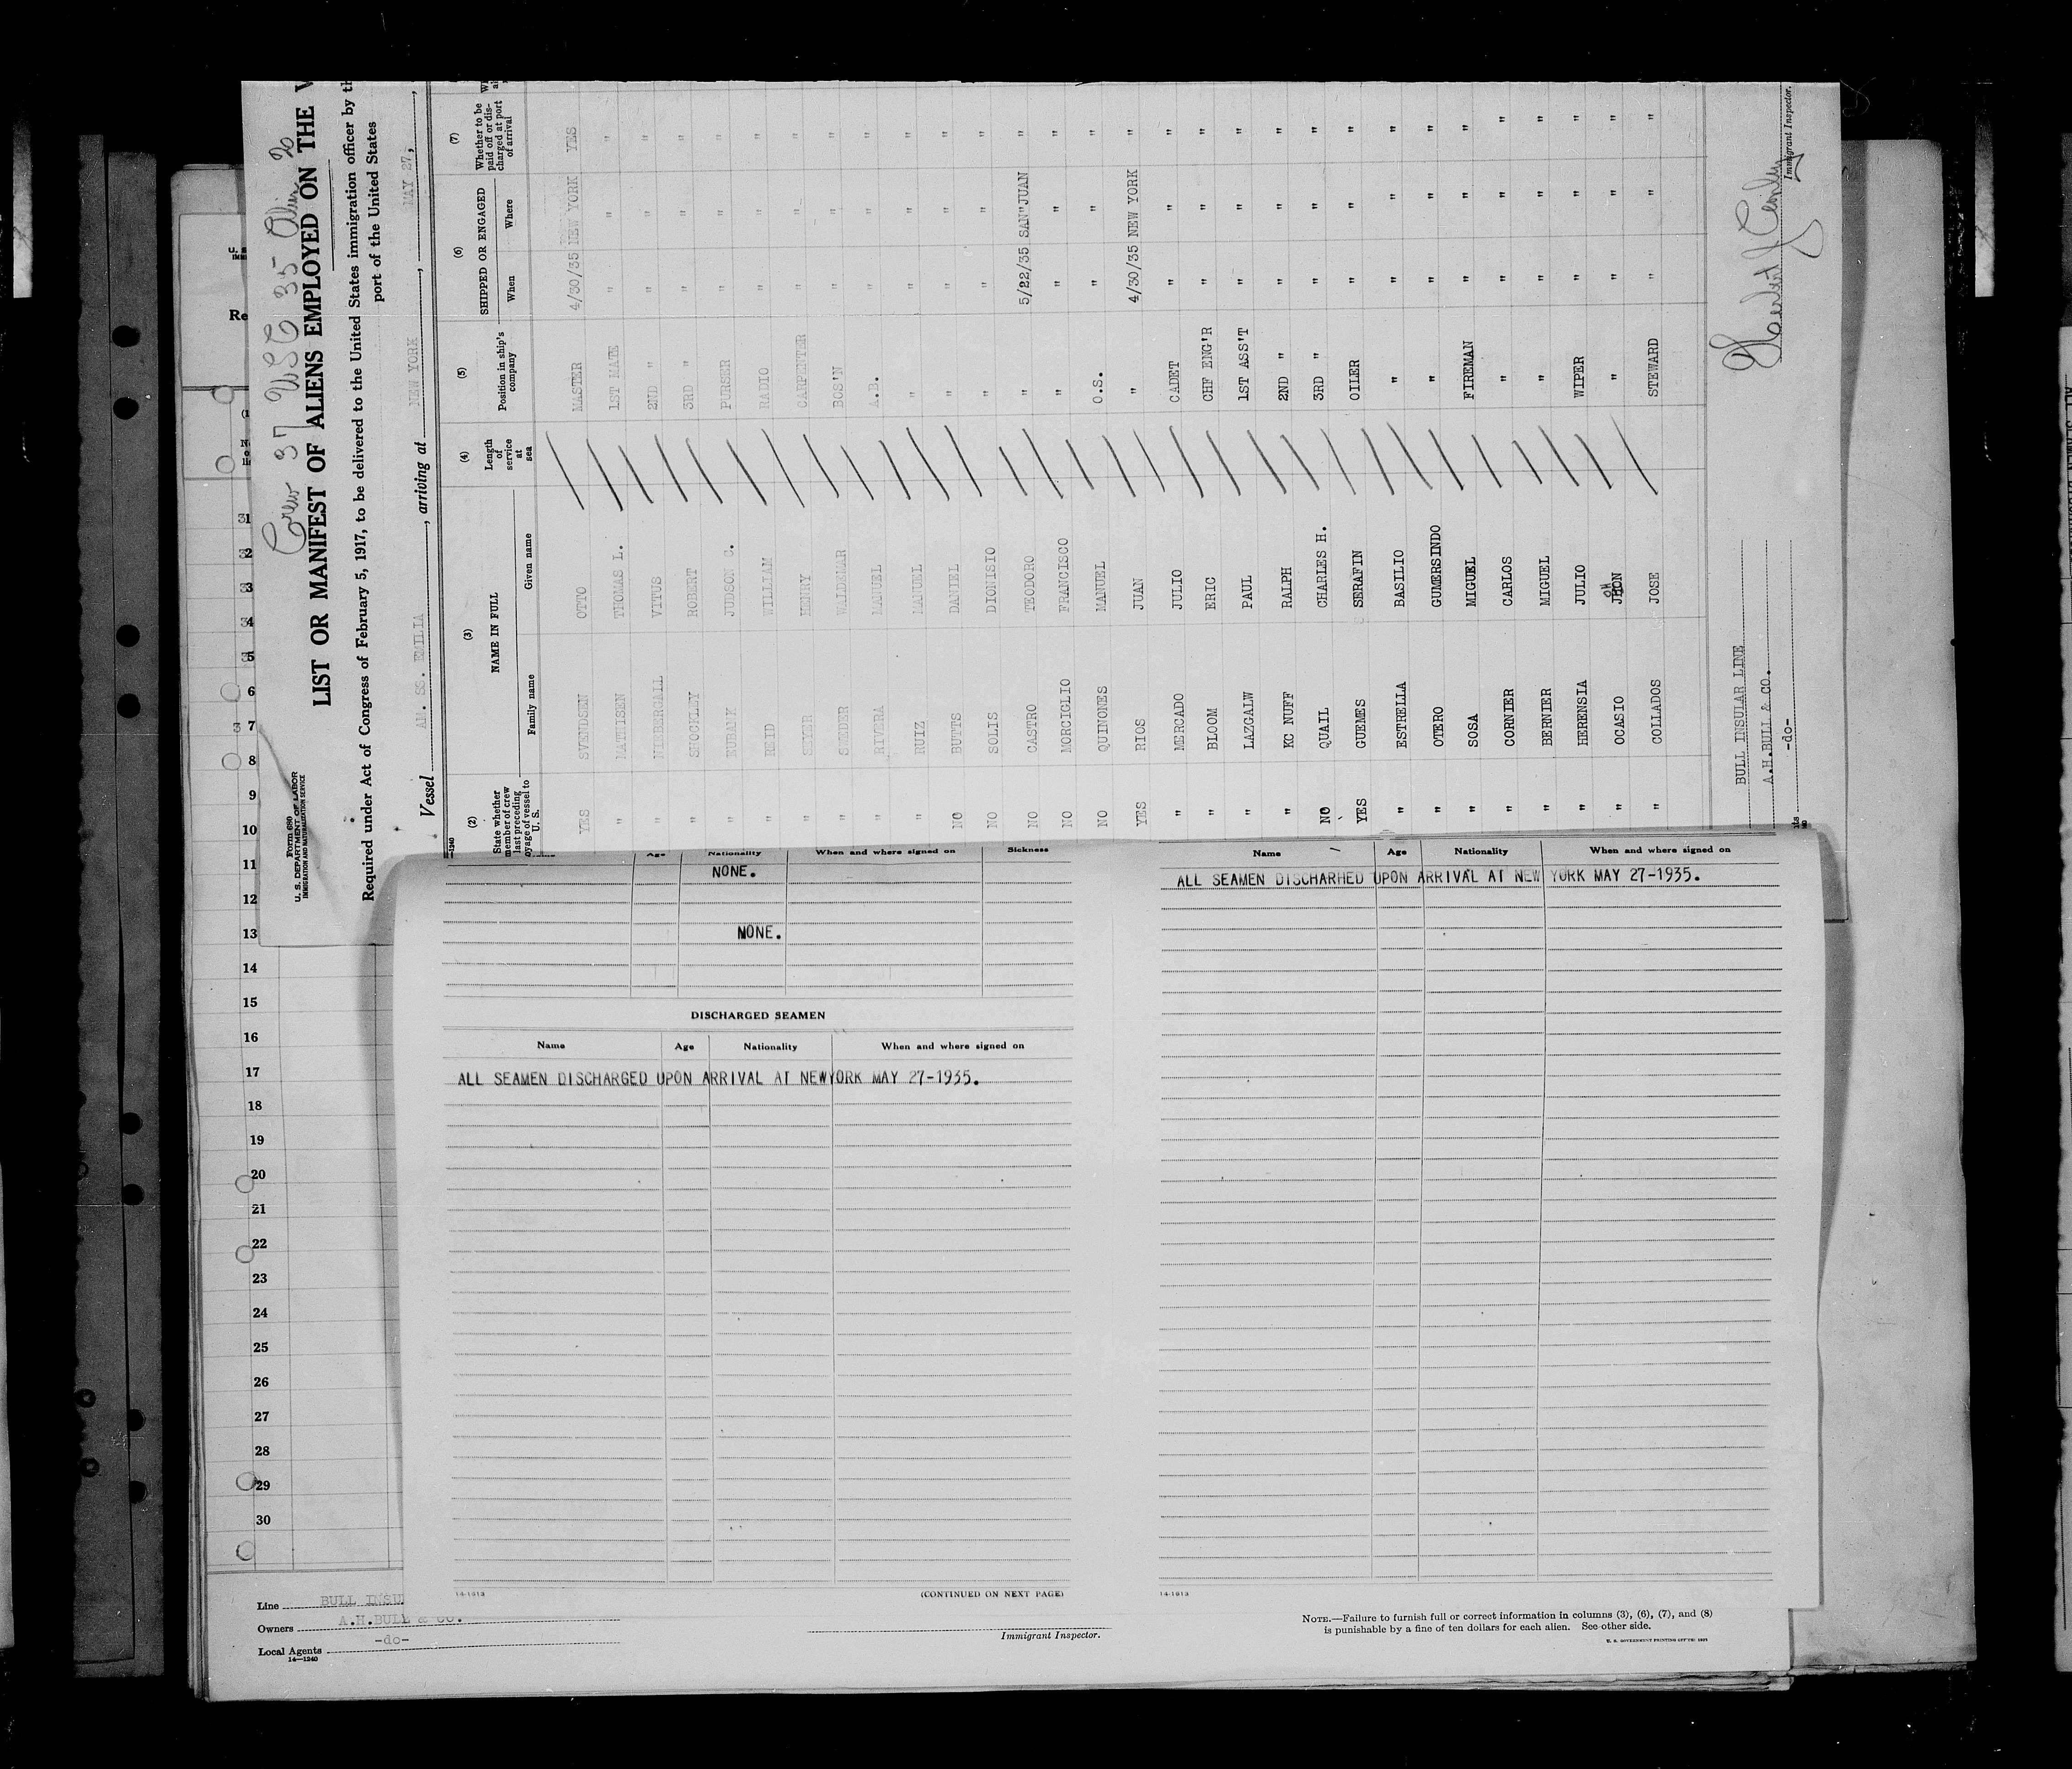 Crew 37 USC 35 Alien 2
Form 680
U. S. DEPARTMENT OF LABOR
IMMIGRATION AND NATURALIZATION SERVICE
LIST OR MANIFEST OF ALIENS EMPLOYED ON THE V
Required under Act of Congress of February 5, 1917, to be delivered to the United States immigration officer by th
port of the United States
Vessel AM. SS. EMILIA, arriving at NEW YORK, MAY 27,
(2) (3) (4) (5) (6) (7)
State whether member of crew last preceding voyage of vessel to U. S.
NAME IN FULL
Family name Given name
Length of service at sea
Position in ship's company
SHIPPED OR ENGAGED
When Where
Whether to be paid off or discharged at port of arrival
YES SVENDSEN OTTO MASTER 4/30/35 NEW YORK YES
" MATHISEN THOMAS L. 1ST MATE " " "
" VITUS 2ND " " " "
" SHOCKLEY ROBERT 3RD " " " "
" JUDSON PURSER " " "
" REID WILLIAM RADIO " " "
" HENRY CARPENTER " " "
" WALDEMAR BOS'N " " "
" RIVERA MANUEL A.B. " " "
" RUIZ MANUEL " " " "
NO BUTTS DANIEL " " " "
NO SOLIS DIONISIO " " " "
NO CASTRO TEODORO " 5/22/35 SAN JUAN "
NO MORCIGLIO FRANCISCO " " " "
NO QUINONES MANUEL O.S. " " "
YES RIOS JUAN " 4/30/35 NEW YORK "
" MERCADO JULIO CADET " " "
" BLOOM ERIC CHF ENG'R " " "
" LAZGALW PAUL 1ST ASS'T " " "
" KC NUFF RALPH 2ND " " " "
NO QUAIL CHARLES H. 3RD " " " "
YES GUEMES SERAFIN OILER " " "
" ESTRELLA BASILIO " " " "
" OTERO GUMERSINDO " " " "
" SOSA MIGUEL FIREMAN " " "
" CORNIER CARLOS " " " "
" BERNIER MIGUEL " " " "
" HERENSIA JULIO WIPER " " "
" OCASIO " " " "
" COLLADOS JOSE STEWARD " " "
BULL INSULAR LINE
A.H.BULL & CO.
-do-
Immigrant Inspector.
Age Nationality When and where signed on Sickness
NONE.
NONE.
DISCHARGED SEAMEN
Name Age Nationality When and where signed on
ALL SEAMEN DISCHARGED UPON ARRIVAL AT NEWYORK MAY 27-1935.
14-1613
(CONTINUED ON NEXT PAGE)
Name Age Nationality When and where signed on
ALL SEAMEN DISCHARHED UPON ARRIVAL AT NEW YORK MAY 27-1935.
14-1613
Re
1
2
3
4
5
6
7
8
9
10
11
12
13
14
15
16
17
18
19
20
21
22
23
24
25
26
27
28
29
30
Line BULL INSU
Owners A.H.BULL & CO.
Local Agents -do-
14-1240
Immigrant Inspector.
NOTE.—Failure to furnish full or correct information in columns (3), (6), (7), and (8)
is punishable by a fine of ten dollars for each alien. See other side.